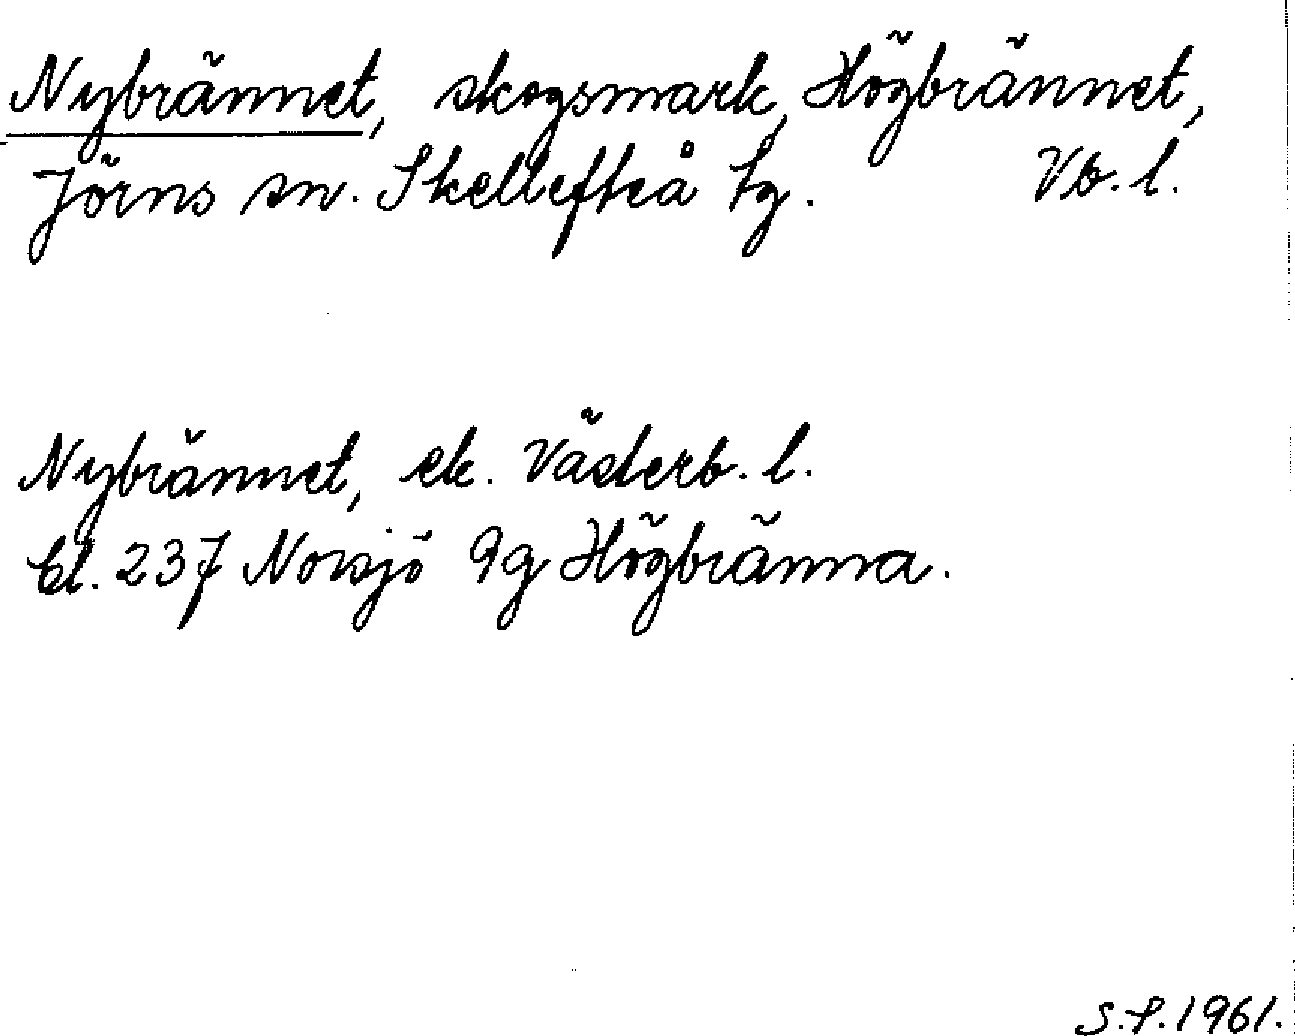 Nybrännet, skogsmark, Högbrännet,
Jörns sn. Skellefteå tg. Vb. l.
Nybrännet, ek. Västerb. l.
bl. 237 Norsjö 9g Högbränna.
S.P. 1961.